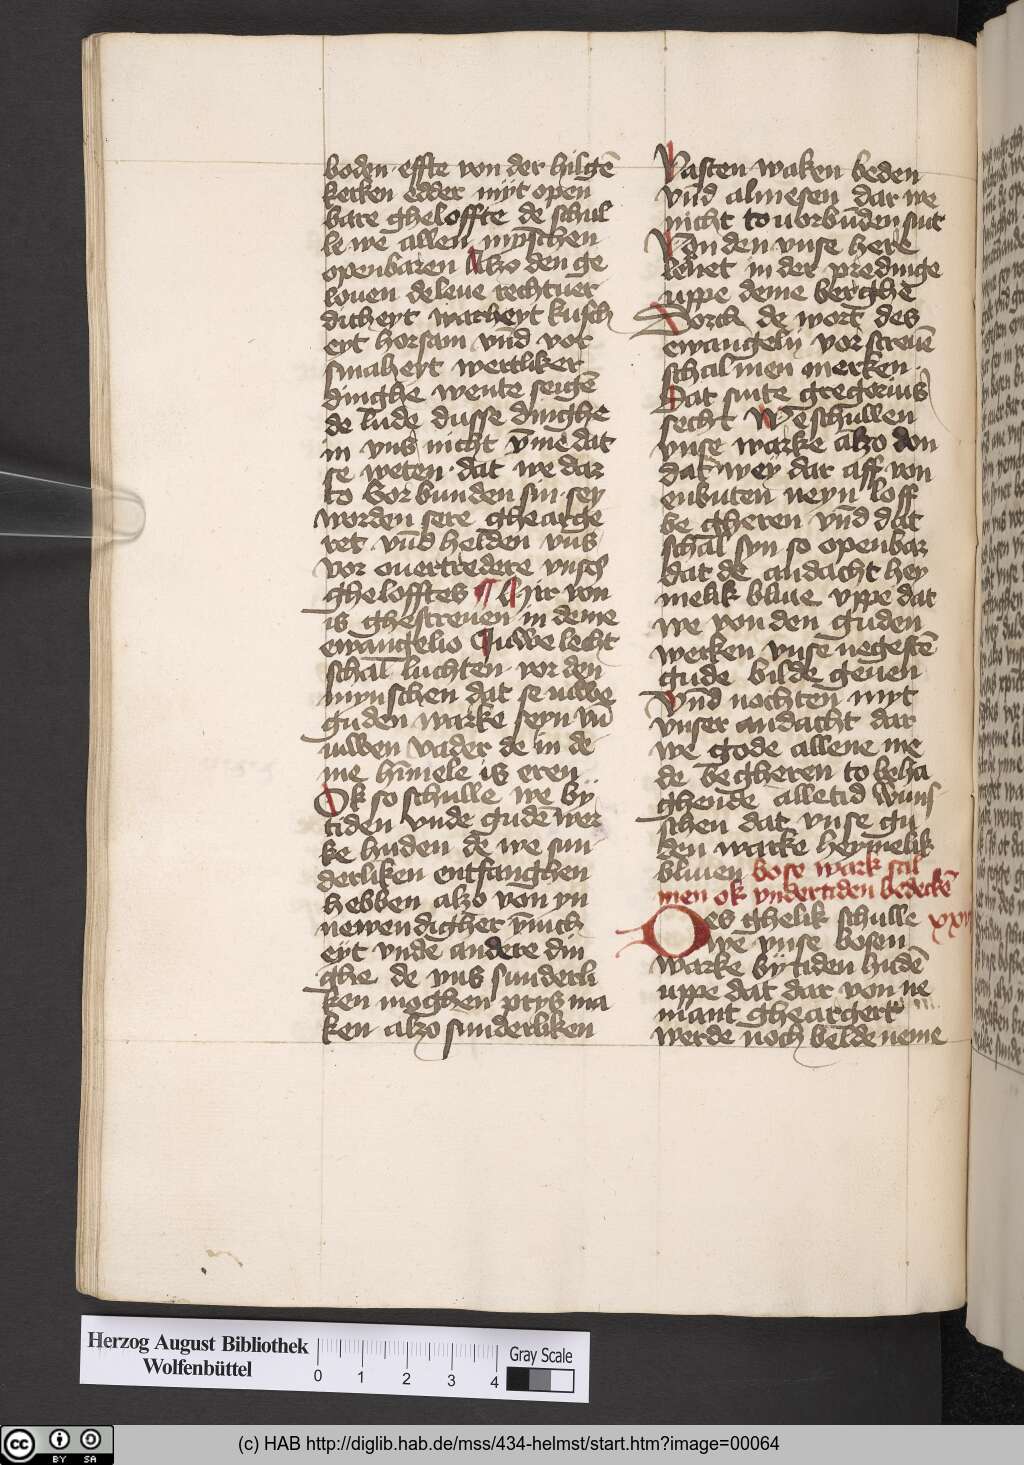 boden effte von der hilgē
kerken edder myt open
bare gheloffte de schul
le we allen mynschen
openbaren Alzo den ge
louen de leue rechtuer
dicheyt warheyt kusch
eyt horsam vnd vor
smaheyt wertliker
dinghe wente seigē
de lude dusse dinghe
in vns nicht vm̄e dat
se weten dat we dar
to vorbunden sin sey
worden sere ghearge
ret vnd helden vns
vor ouertredere vnses
ghelofftes ¶ Hir von
is ghescreuen in deme
ewangelio Juwe lecht
schal luchten vor den
mynschen dat se iuwe
guden warke seyn vn̄
iuwen vader de in de
me hēmele is eren
Ok so schulle we by
tiden vnde gudē wer
ke huden de we sun
derliken entfanghen
hebben alzo von yn
newendigher ynnich
eyt vnde andere din
ghe de vns sunderli
ken moghen prys ma
ken alzo sunderliken
Vasten waken beden
vnd almesen dar we
nicht to uorbūden sint
Von den vnse here
leuet in der predinge
uppe deme berghe
Dorch de wort des
ewangelij vorscreuē
schal men merken
Dat sinte gregorius
secht We schullen
vnse warke alzo don
dat wey dar aff von
enbuten neyn loff
be gheren vnd dat
schal syn so openbar
dat de andacht hey
melik bliue vppe dat
we von den guden
werken vnse negestē
gude bilde geuen
Vnd nochten myt
vnser andacht dar
we gode allene me
de begheren to beha
ghende alletid wuns
schen dat vnse gu
den warke heymelik
bliuen bose wark scal
men ok vndertiden bedeckē
Des ghelik schulle xxvi
we vnse bosen
warke bytiden hudē
uppe dat dar von ne
mant gheargert
werde noch belde neme
Herzog August Bibliothek
Wolfenbüttel
0 1 2 3 4
Gray Scale
cc BY SA
(c) HAB http://diglib.hab.de/mss/434-helmst/start.htm?image=00064